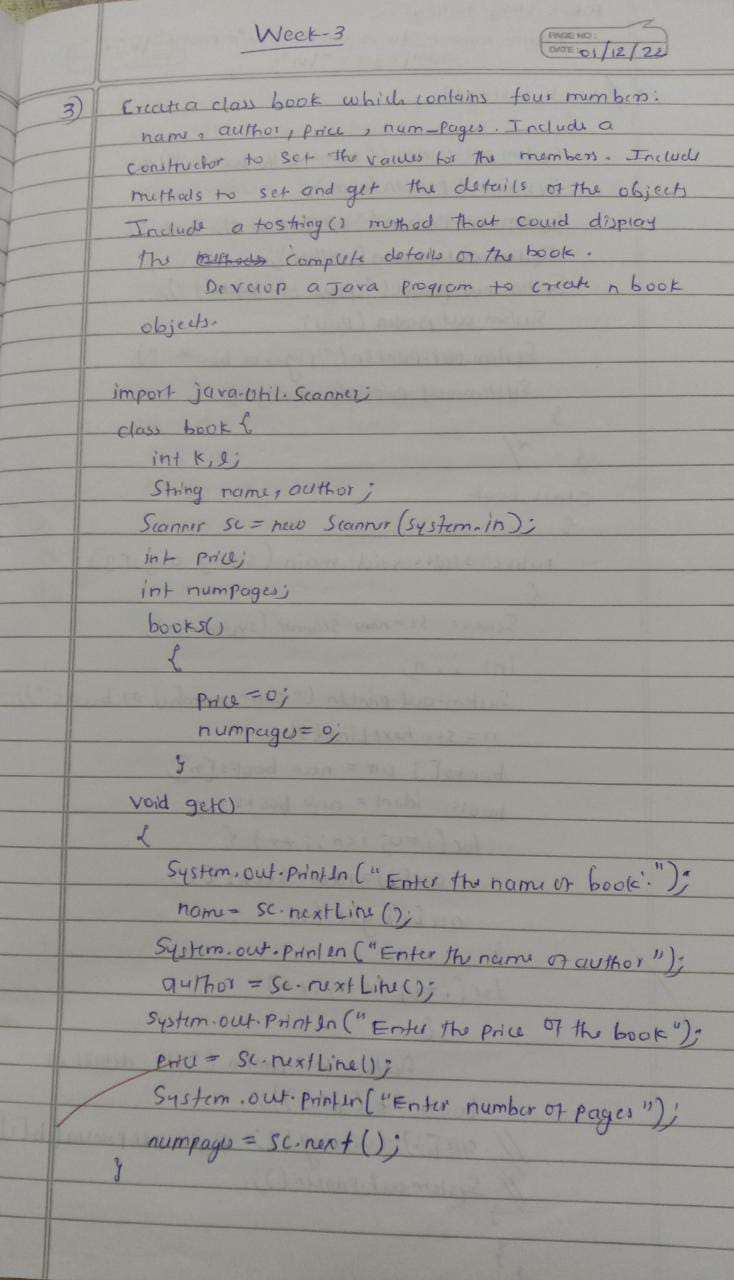 Week-3
PAGE NO:
DATE: 01/12/22
3) Create a class book which contains four members:
name, author, price, num_pages. Include a
constructor to set the values for the members. Include
methods to set and get the details of the objects
Include a tostring() method that could display
the complete details of the book.
Develop a Java program to create n book
objects.
import java.util.Scanner;
class book {
int k, l;
String name, author;
Scanner sc = new Scanner(system.in);
int price;
int numpages;
books()
{
price = 0;
numpages = 0;
}
void get()
{
System.out.println("Enter the name of book:");
name = sc.nextLine();
System.out.println("Enter the name of author");
author = sc.nextLine();
System.out.println("Enter the price of the book");
price = sc.nextLine();
System.out.println("Enter number of pages");
numpages = sc.next();
}